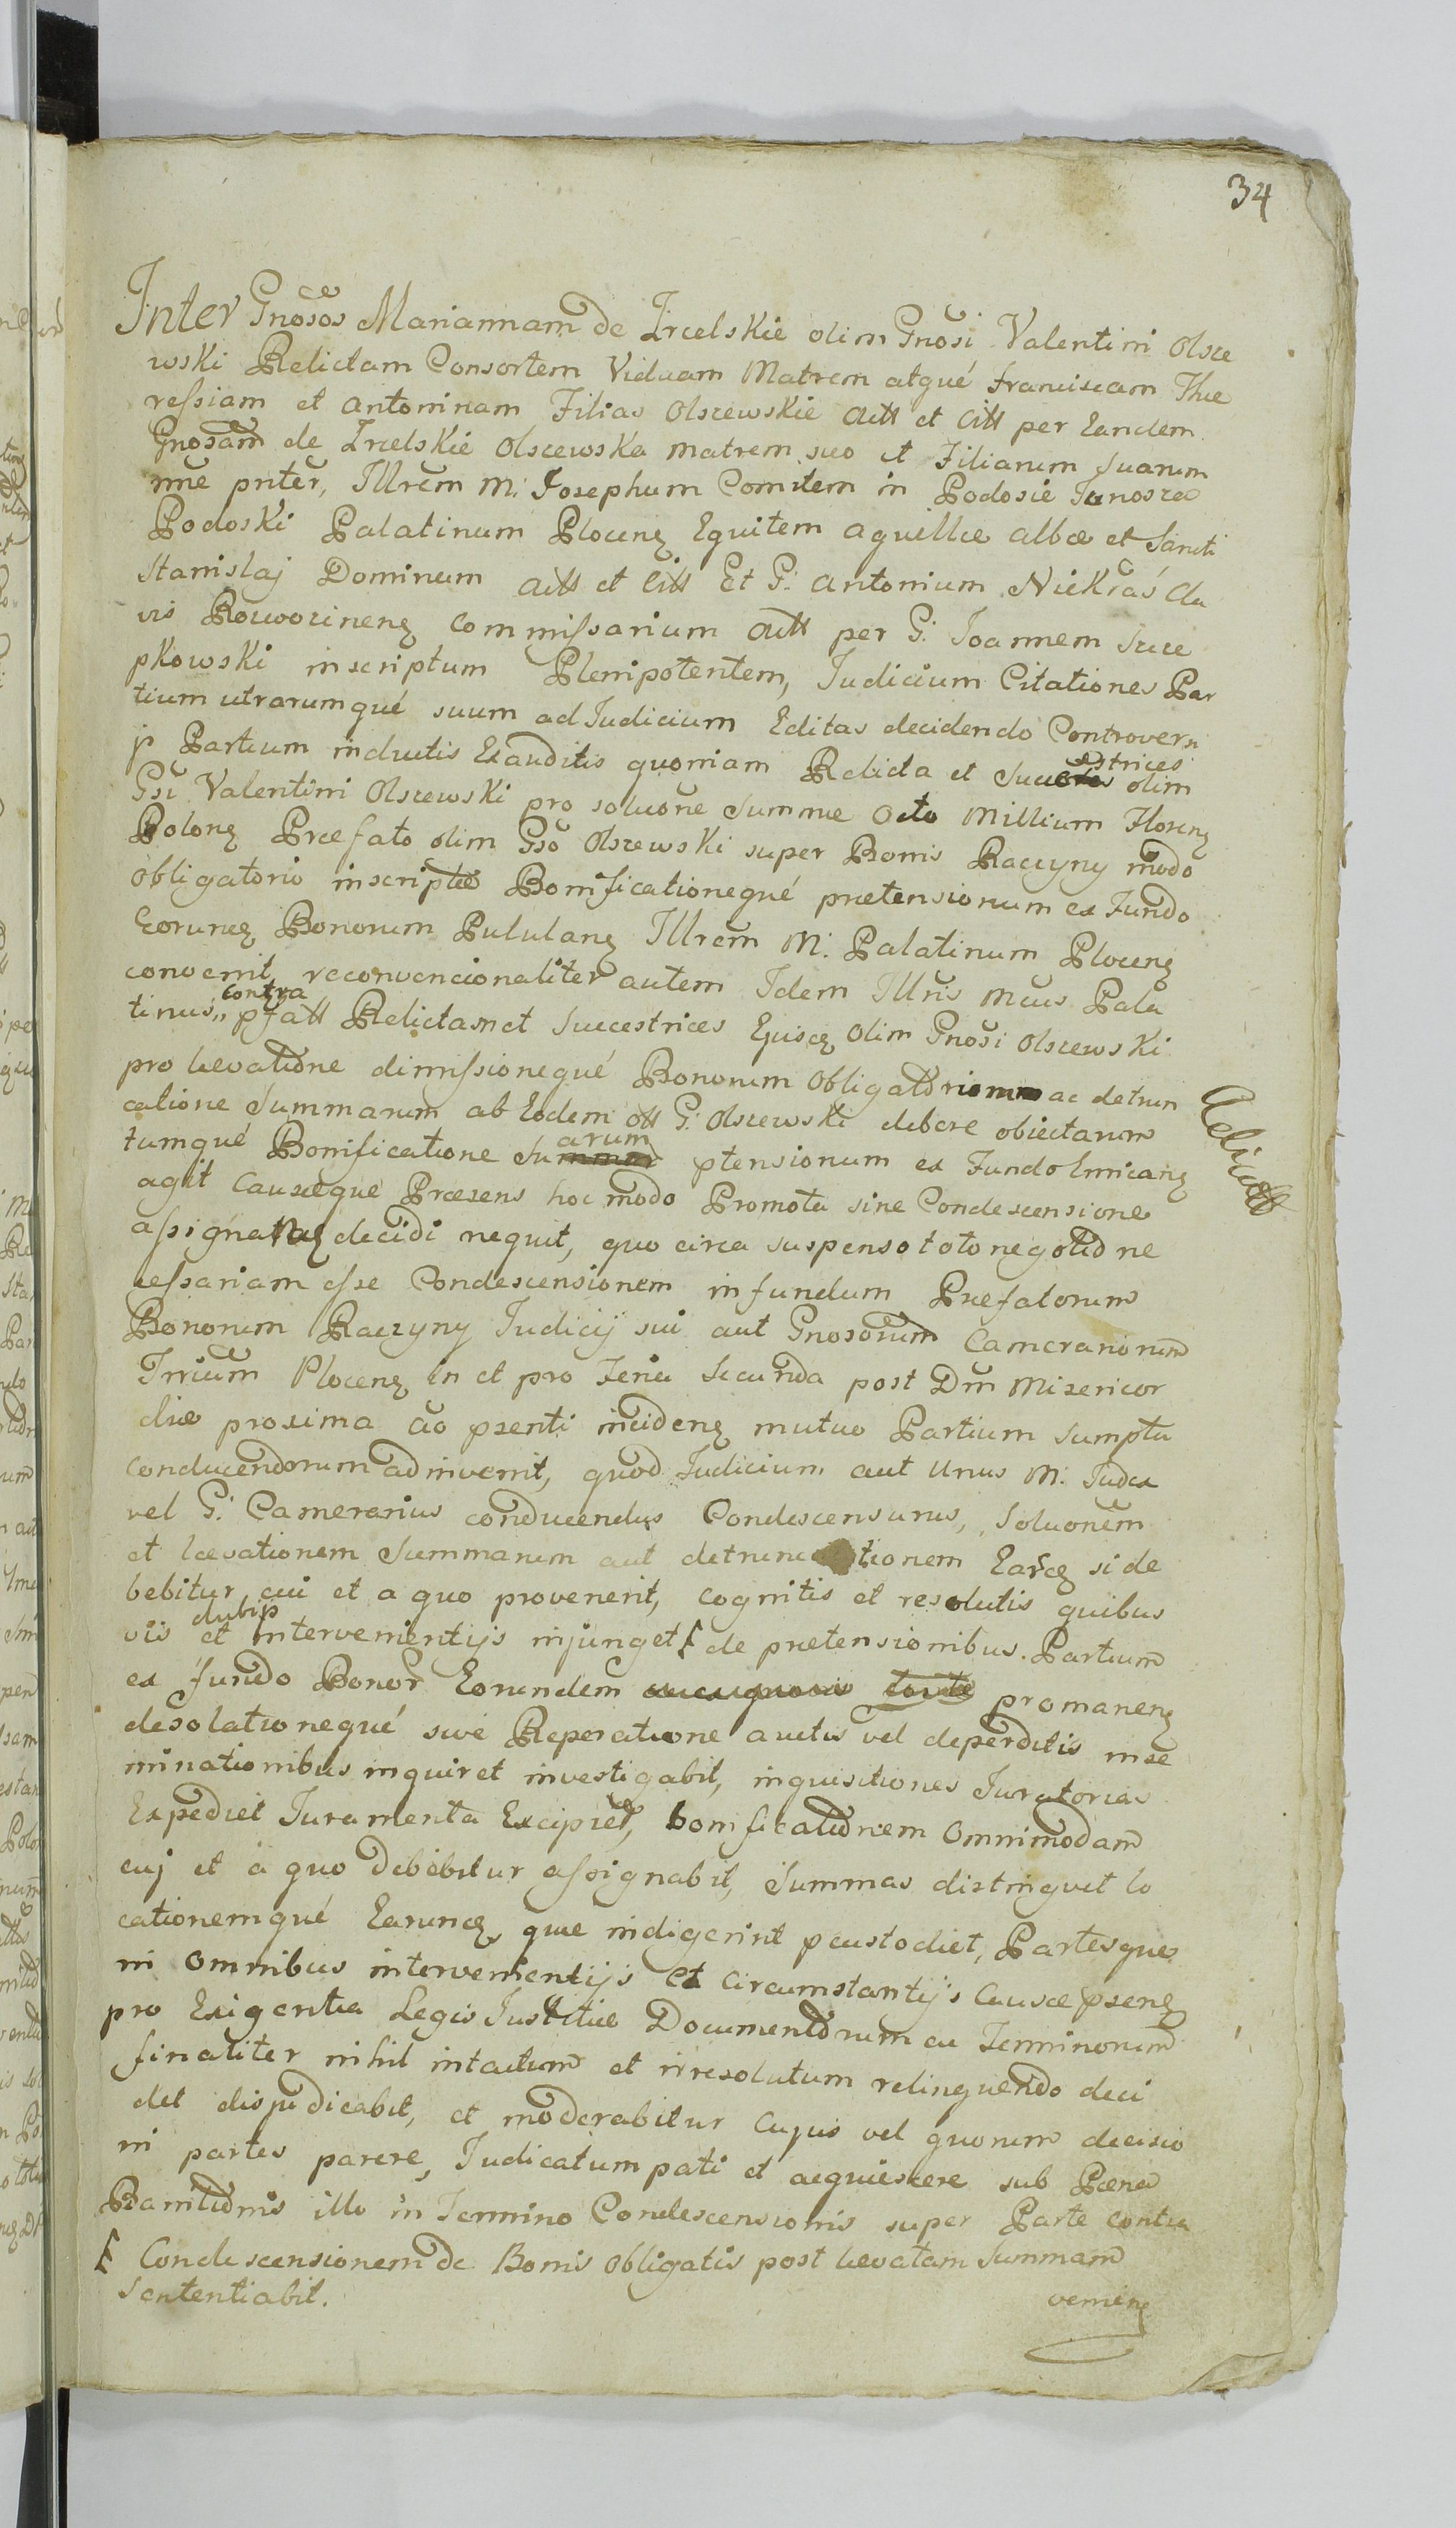 34
Inter Gnosos Mariannam de Ircelskie olim Gnosi Valentini Olsze
wski Relictam Consortem Viduam Matrem atque Franciscam The
ressiam et Antoninam Filias Olszewskie Actt et Citt per Eandem
Gnosam de Ircelskie Olscewska matrem suo et Filiarum Suarum
nne pnter, Illrem M: Josephum Comitem in Podosie Junosza
Podoski Palatinum Plocenz Equitem aquillæ albæ et Sancti
Stanislaj Dominum Actt et Citt Et G: Antonium Niekraś Cla
vis Rozworinenz Commissarium Actt per G: Joannem Szcze
pkowski inscriptum Plenipotentem, Judicium Citationes Par
tium utrarumqué suum ad Judicium Editas decidendo Controvers
ijs Partium inductis Exauditis quoniam Relicta et Succestrices olim
Gsi Valentini Olszewski pro soluone Summe Octo Millium Florenz
Polonz Præfato olim Gso Olszewski super Bonis Raczyny modo
obligatorio inscriptæ Bonificationequé prætensionum ex Fundo
Eorunqz Bonorum Pululanz Illrem M: Palatinum Plocenz
convenit, reconvencionaliter autem Idem Illris Mcus Pala
tinus,, contra pfatt Relictam et Succestrices Ejusqz olim Gnosi Olszewski
pro levatione dimissionequé Bonorum Obligatoriorum ac detrun
catione Summarum ab Eodem ott G: Olszewski debere obiectarum
tumqué Bonificatione Suarum ptensionum ex Fundo Emicanz
agit Causæque Præsens hoc modo Promota sine Condescensione
assignanz decidi nequit, quo circa suspenso toto negotio ne
cessariam esse Condescensionem in fundum Præfatorum
Bonorum Raczyny Judicij sui aut Gnosorum Camerariorum
Trrium Plocenz in et pro Feria Secunda post Dm Misericor
diæ proxima ao psenti incidenz mutuo Partium Sumptu
conducendorum adinvenit, quod Judicium aut Unus M: Judex
vel G: Camerarius conducendus Condescensurus, Soluonem
et levationem Summarum aut detruncationem Earqz si de
bebitur cui et a quo provenerit, cognitis et resolutis quibus
vis dubijs et intervenientijs injunget de prætensionibus Partium
ex fundo Bonor Eorundem promanenz
desolationequé sive Reperatione auctis vel deperditis inse
minationibus inquiret investigabit, inquisitiones Juratorias
Expediet Juramenta Excipiet, bonificationem Omnimodam
cuj et à quo Debebitur assignabit, Summas distinguet lo
cationemqué Earunqz, quæ indigerint pcustodiet, Partesque
in Omnibus intervenientijs et circumstantijs Causæ psenz
pro Exigentia Legis Justitiæ Documentorum ac Terminorum
finaliter nihil intactum et irresolutum relinquendo deci
det disjudicabit, et moderabitur cujus vel quorum decisio
ni partes parere, Judicatum pati et acquiescere sub Pæna
Banitionis illo in Termino Condescensionis super Parte contra
Condescensionem de Bonis Obligatis post levatam Summam
Sententiabit.
venienz